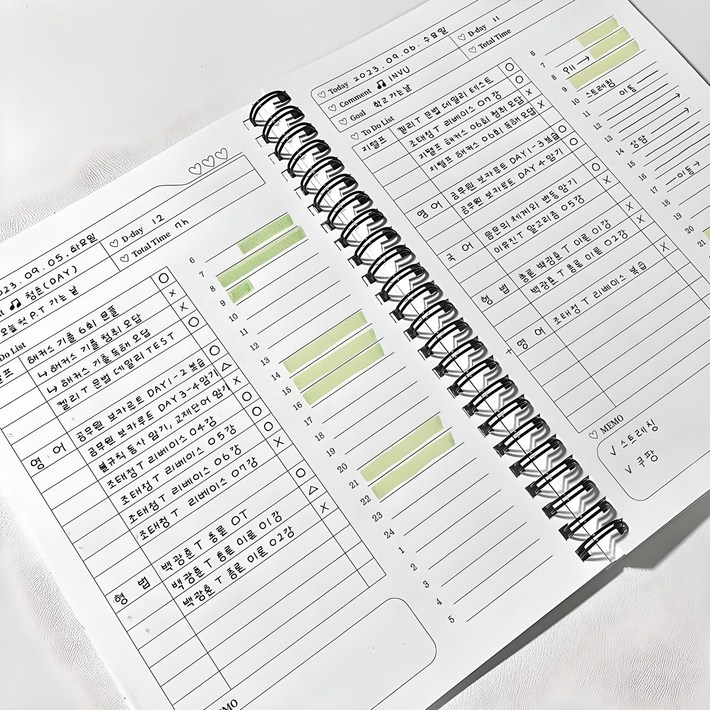 023. 09. 05. 화요일
D-day 12
Total Time nh
♫ 청춘 (DAY)
오늘 첫 P.T 가는 날
Do List
해커스 기출 6회 모플 ○
↳ 해커스 기출 청취 오답 ×
↳ 해커스 기출 독해 오답 ×
켈리T 문법 데일리 TEST ○
영어
공무원 보카루트 DAY 1-2 복습 ○
공무원 보카루트 DAY 3-4 암기 △
불규칙 동사 암기, 교재단어 암기 ×
조태정T 리베이스 04강 ○
조태정T 리베이스 05강 ○
조태정T 리베이스 06강 ○
조태정T 리베이스 07강 ×
형법
백광훈T 총론 OT ○
백광훈T 총론 이론 01강 △
백광훈T 총론 이론 02강 ×
MEMO
6
7
8
9
10
11
12
13
14
15
16
17
18
19
20
21
22
23
24
1
2
3
4
5
Today 2023. 09. 06. 수요일
D-day 11
Comment ♫ INVU
Total Time
Goal 학교가는날
To Do List
지텔프
켈리T 문법 데일리 테스트 ○
조태정T 리베이스 07강 ○
지텔프 해커스 06회 청취 오답 ×
지텔프 해커스 06회 독해 오답 ×
영어
공무원 보카루트 DAY 1-3 복습 ○
공무원 보카루트 DAY 4 암기 ○
국어
음운의 체계와 변동 암기 ○
이유진T 알고리즘 05강 ×
형법
총론 백광훈T 이론 01강 ○
백광훈T 총론 이론 02강 ×
+ 영어
조태정T 리베이스 복습 ×
MEMO
√ 스트레칭
√ 쿠팡
6
7
8
9
10 스트레칭
11 이동
12
13
14 상담
15
16
17 이동 →
18
19
20
21